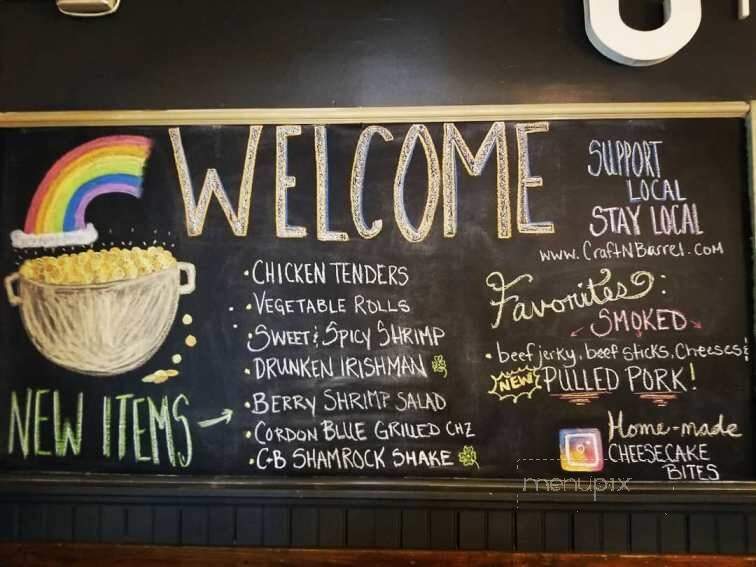 WELCOME
SUPPORT
LOCAL
STAY LOCAL
www.CraftNBarrel.com
• CHICKEN TENDERS
• VEGETABLE ROLLS
• SWEET & SPICY SHRIMP
• DRUNKEN IRISHMAN
• BERRY SHRIMP SALAD
• CORDON BLUE GRILLED CHZ
• C+B SHAMROCK SHAKE
NEW ITEMS →
Favorites:
SMOKED
• beef jerky, beef sticks, Cheeses &
NEW PULLED PORK!
Home-made
CHEESECAKE
BITES
menupix